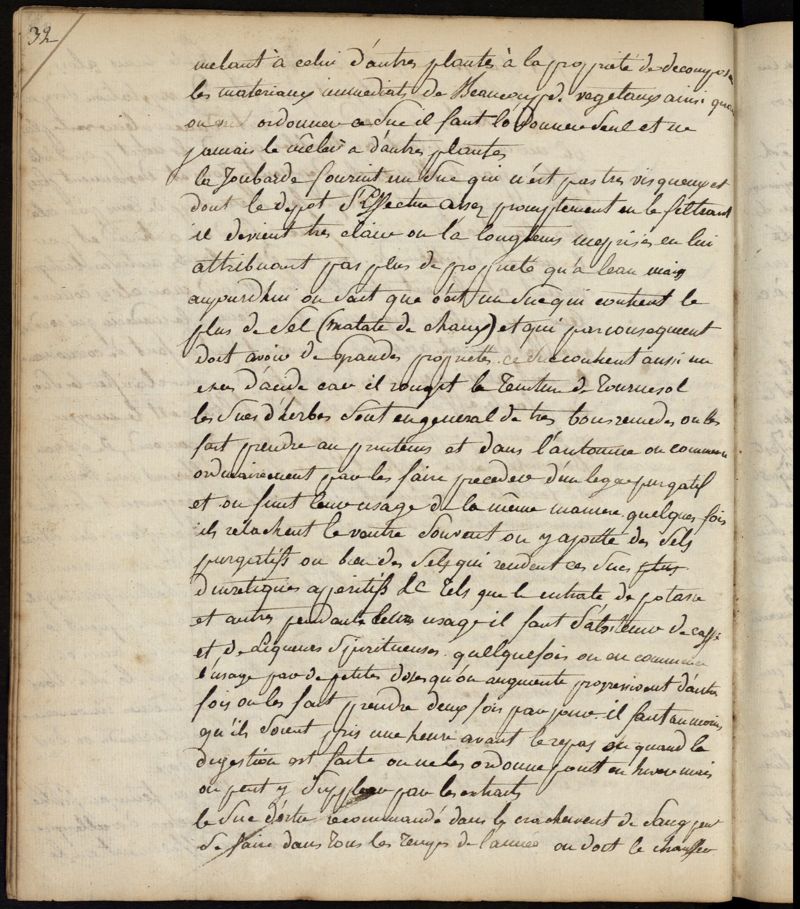 32
melant à celui d'autres plantes à la proprieté de decomposer
les materiaux immediats de Beaucoup de vegetaux ainsi quand
on ordonne ce Suc il faut l'ordonner Seul et ne
jamais le mêler a d'autres plantes
la Joubarbe fournit un Suc qui n'est pas tres visqueux et
dont le depot S'Effectue assez promptement en le filtrant
il devient tres claire on la longtems meprisés en lui
attribuant pas plus de proprieté qu'a leau mais
aujourdhui on Sait que c'est un Suc qui contient le
plus de Sel (malate de chaux) et qui par consequent
doit avoir de Grandes proprietés contient aussi un
exces d'acide car il rougit la Teinture de Tournesol
les Sucs d'herbes Sont en general de tres bons remedes on les
fait prendre au printems et dans l'automne on commence
ordinairement par les faire preceder d'un leger purgatif
et on finit leur usage de la même maniere quelques fois
ils relachent le ventre Souvent on y ajoutte des Sels
purgatifs ou bien des Sels qui rendent ces Sucs plus
Diuretiques apperitifs &c Tels que le nitrate de potasse
et autres pendant leur usage il faut S'abstenir de caffé
et de Liqueurs Spiritueuses quelquefois on en commence
l'usage par de petites doses qu'on augmente progressivent d'autre
fois on les fait prendre deux fois par jour il faut au moins
qu'ils Soient pris une heure avant le repas ou quand la
digestion est faite on ne les ordonne point en hiver mais
on peut y Suppleer par les extraits
le Suc d'ortie recommandé dans le crachement de Sang peut
Se faire dans Tous les Temps de l'année on doit le chauffer